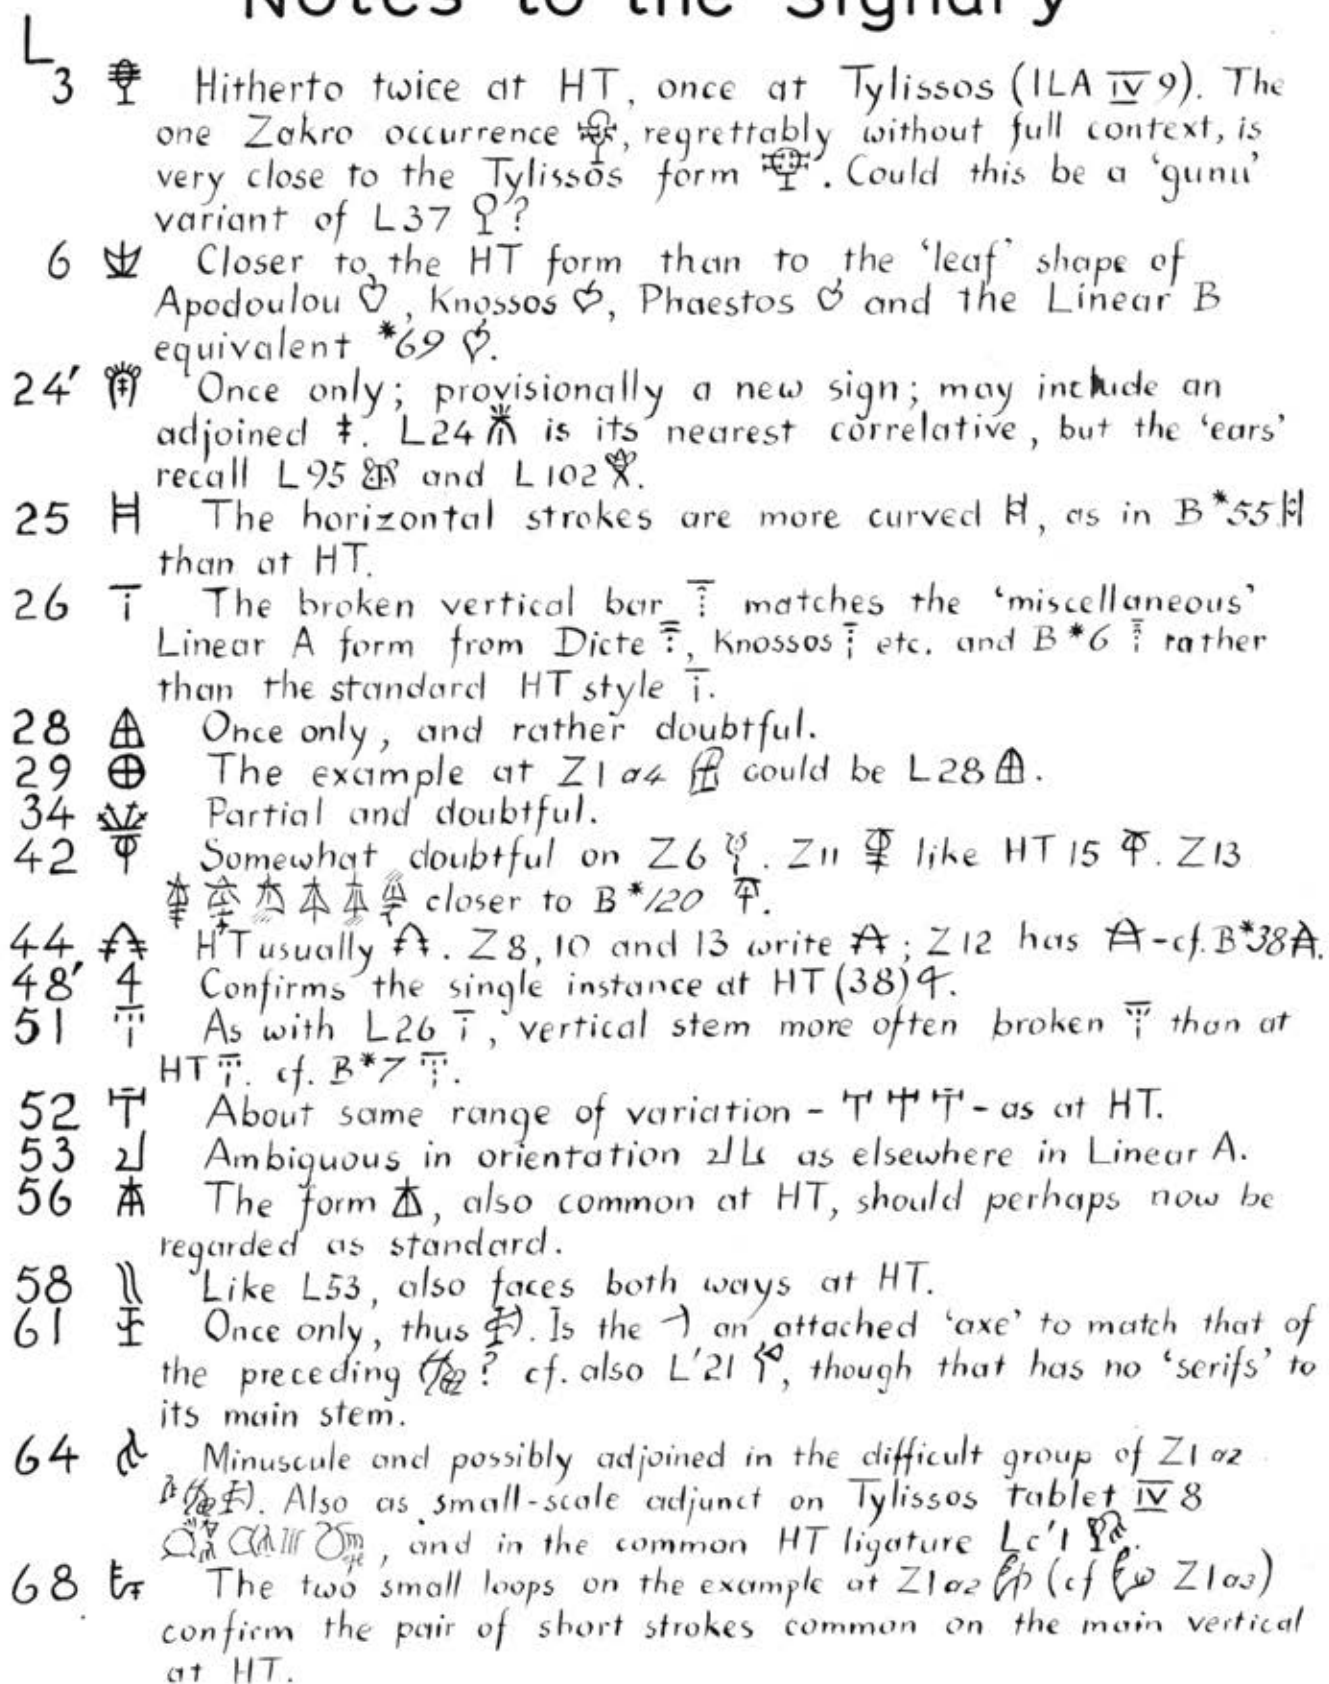 Notes to the Signary
L
3 Hitherto twice at HT, once at Tylissos (ILA IV 9). The
one Zakro occurrence , regrettably without full context, is
very close to the Tylissos form . Could this be a 'gunu'
variant of L37 ?
6 Closer to the HT form than to the 'leaf' shape of
Apodoulou , Knossos , Phaestos and the Linear B
equivalent *69 .
24' Once only; provisionally a new sign; may include an
adjoined ‡. L24 is its nearest correlative, but the 'ears'
recall L95 and L102 .
25 The horizontal strokes are more curved , as in B *55
than at HT.
26 The broken vertical bar matches the 'miscellaneous'
Linear A form from Dicte , Knossos etc. and B *6 rather
than the standard HT style .
28 Once only, and rather doubtful.
29 The example at Z1 a4 could be L28 .
34 Partial and doubtful.
42 Somewhat doubtful on Z6 . Z11 like HT 15 . Z13
closer to B *120 .
44 HT usually . Z8, 10 and 13 write ; Z12 has - cf. B*38 .
48' Confirms the single instance at HT (38) .
51 As with L26 , vertical stem more often broken than at
HT . cf. B*7 .
52 About same range of variation - - as at HT.
53 Ambiguous in orientation as elsewhere in Linear A.
56 The form , also common at HT, should perhaps now be
regarded as standard.
58 Like L53, also faces both ways at HT.
61 Once only, thus . Is the an attached 'axe' to match that of
the preceding ? cf. also L'21 , though that has no 'serifs' to
its main stem.
64 Minuscule and possibly adjoined in the difficult group of Z1 a2
. Also as small-scale adjunct on Tylissos tablet IV 8
, and in the common HT ligature Lc'1 .
68 The two small loops on the example at Z1 a2 (cf Z1 a3)
confirm the pair of short strokes common on the main vertical
at HT.